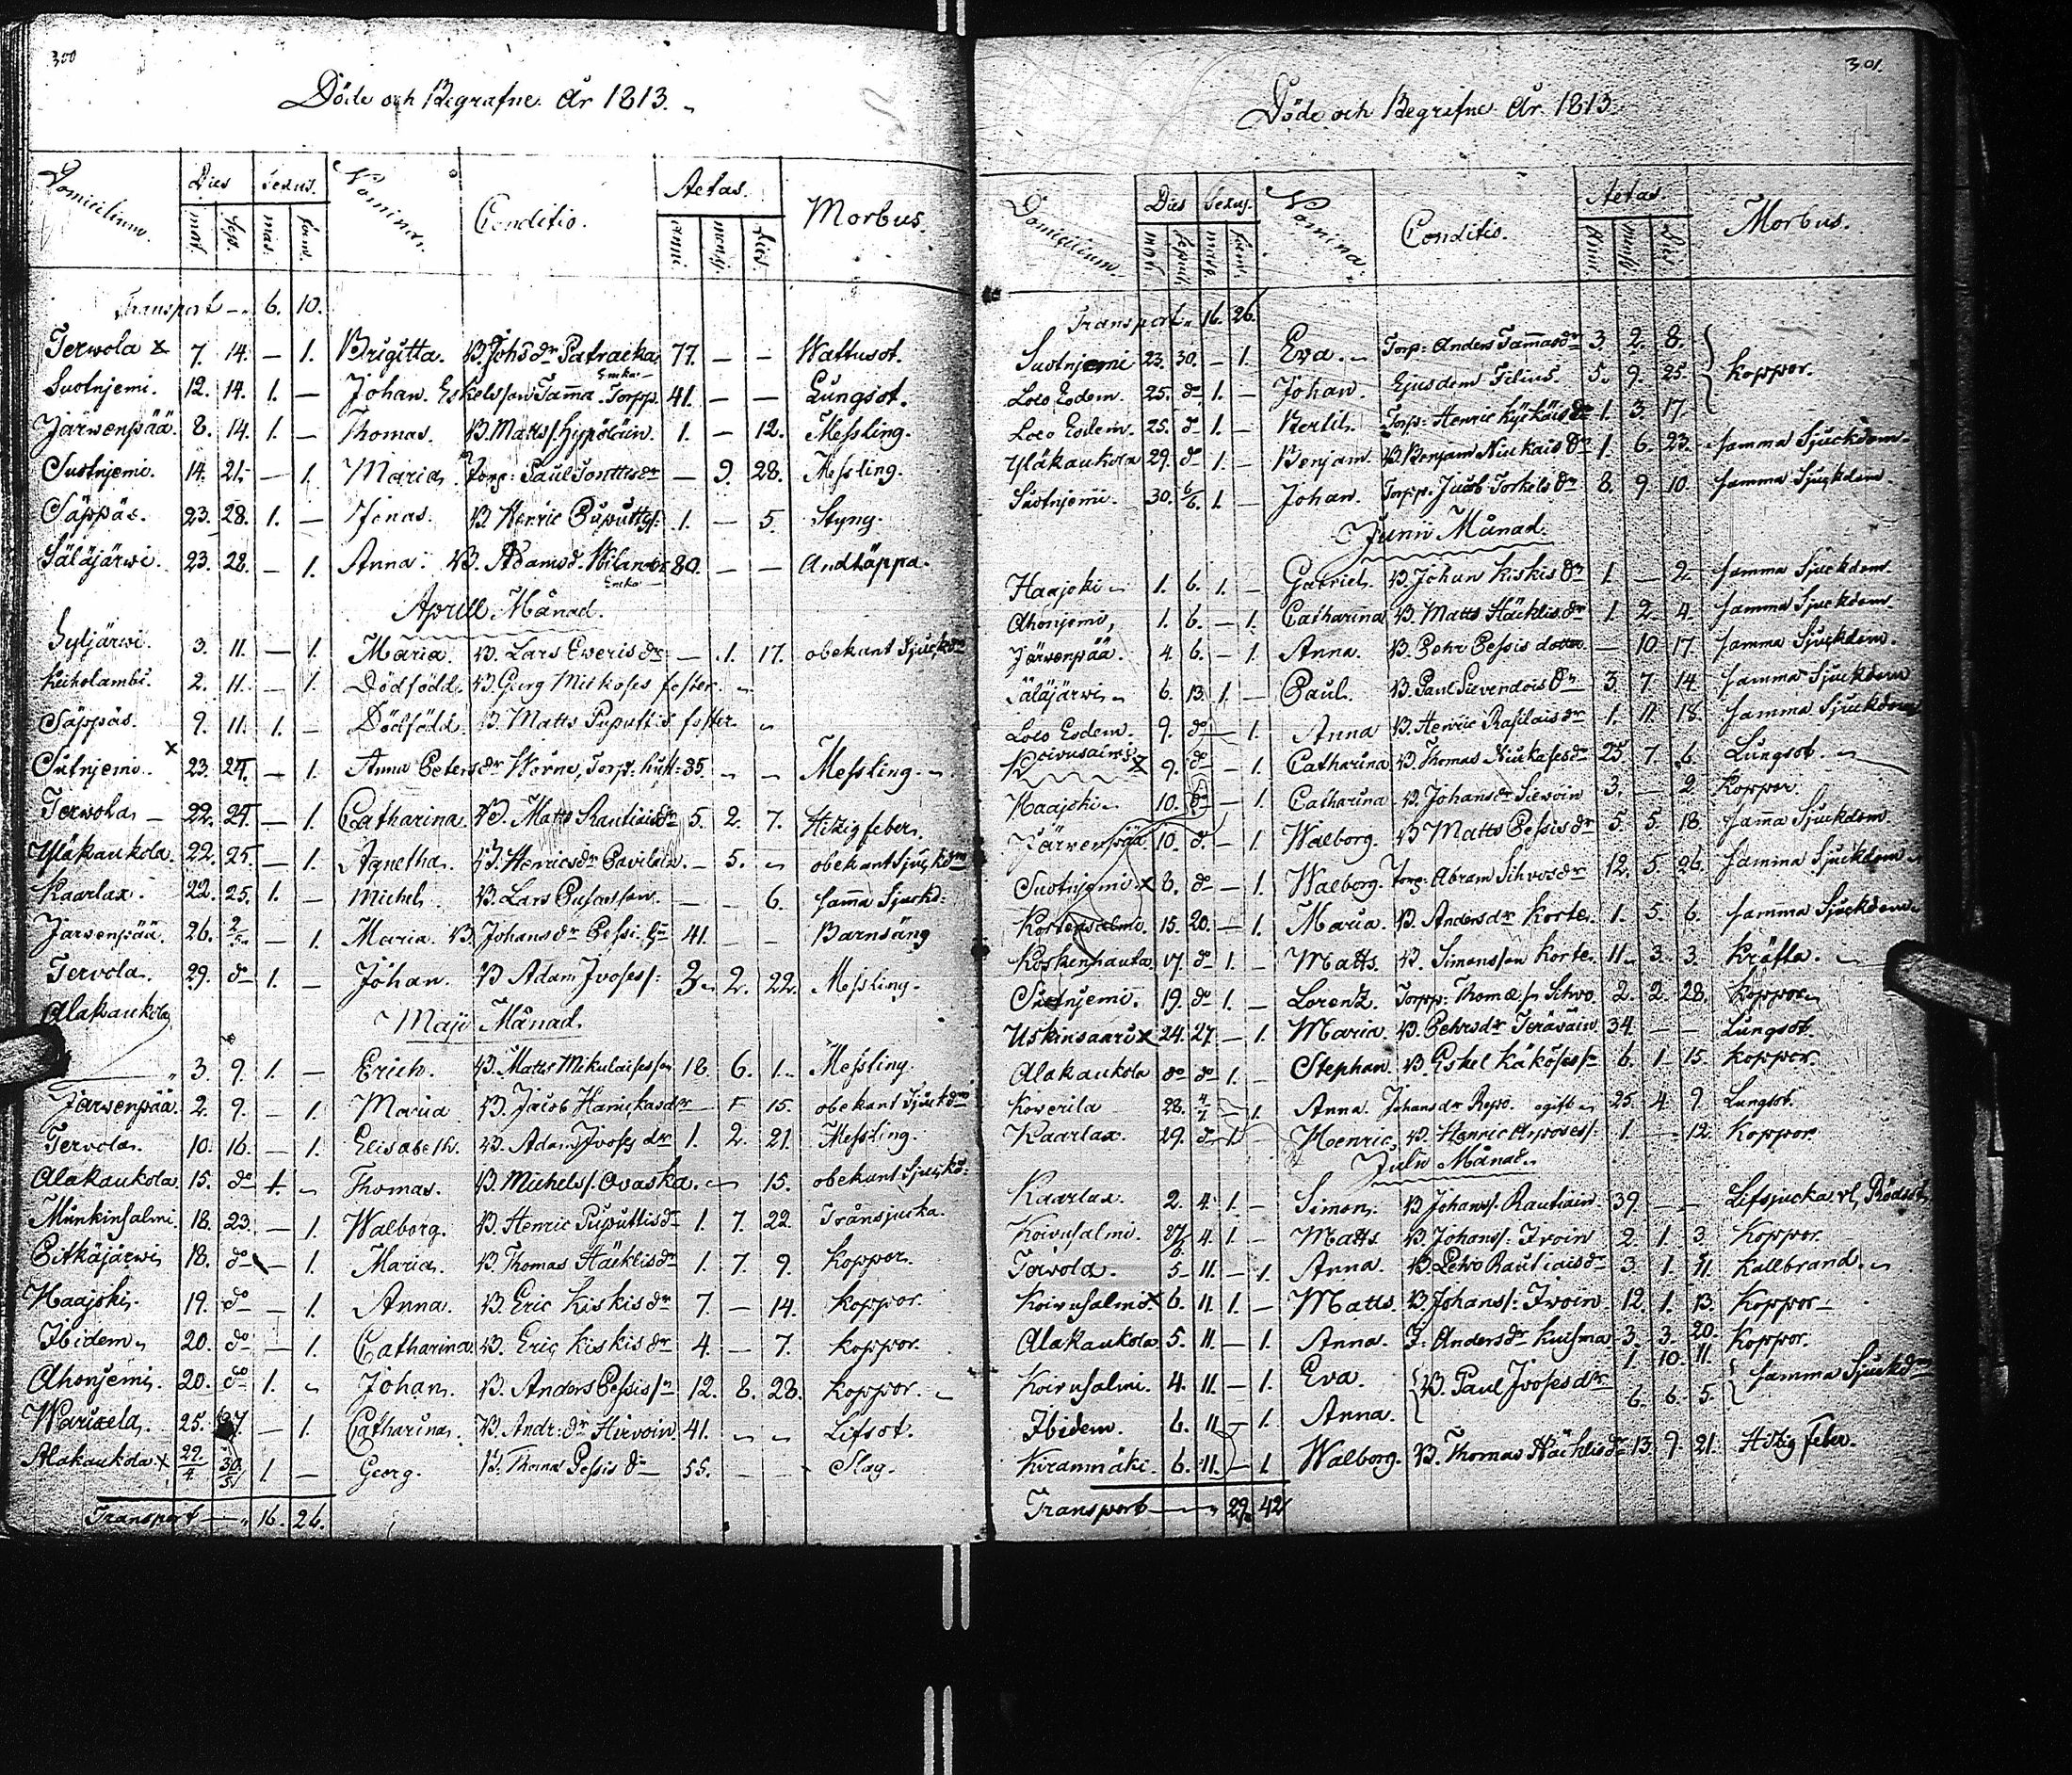 300
Döde och Begrafne År 1813.
Domicilium. Dies Sexus. Nomina. Conditio. Aetas. Morbus
mot. Sep. mas. foem. anni. mens. dies.
Transport — 6. 10.
Terwola x 7. 14. — 1. Brigitta. B. Johsdr Patracka Enka 77. — — Wattusot.
Suotnjemi. 12. 14. 1. — Johan. Eskelsson Tama. Torpp. 41. — — Lungsot.
Järwenpää. 8. 14. 1. — Thomas. B. Matts s. Hypöläin. 1. — 12. Messling.
Suotnjemi. 14. 21. — 1. Maria. Torp: Paul Tonttisdr — 9. 28. Messling.
Säppäs. 23. 28. 1. — Jonas. B Henric Puputtys: 1. — 5. Styng.
Säläjärwi. 23. 28. — 1. Anna. B. Adamsd. Enka 80. — — Andtäppa.
Aprill Månad.
Syljärwi. 3. 11. — 1. Maria. B. Lars Ewerisdr — 1. 17. obekant Sjuckdm
Keiholambi. 2. 11. — 1. Dödfödd. B. Georg Mickoses foster.
Säppäs. 9. 11. 1. — Dödfödd. B Matts Puputtis foster
Sutnjemi. x 23. 27. — 1. Anna Petersdr Worne, Torp: hust: 35. Messling.
Terwola — 22. 27. — 1. Catharina. B. Matts Rautiaisdr 5. 2. 7. Hitzig feber.
Yläkaukola. 22. 25. — 1. Agnetha. B. Henricsdr Pavilain. — 5. obekant Sjuckdm
Kaarlax. 22. 25. 1. — Michel. B. Lars — — 6. samma Sjuckd:
Järwenpää. 26. 2/5. — 1. Maria. B. Johansdr Pessi. 41. — — Barnsäng
Tervola. 29. do 1. — Johan. B Adam Ivoses s: 3. 2. 22. Messling.
Maji Månad.
Alakaukola 3. 9. 1. — Erich. B. Matts Mikulaises sn 18. 6. 1. Messling.
Järwenpää. 2. 9. — 1. Maria B. Jacob Hanickasdr — 15. obekant Sjuckdm
Tervola. 10. 16. — 1. Elisabeth. B. Adam Ivoses dr 1. 2. 21. Messling.
Alakaukola. 15. do 1. Thomas. B. Michels s. Ovaska. 15. obekant Sjuckd:
Munkinsalmi. 18. 23. — 1. Walborg. B. Henric Puputtisdr 1. 7. 22. Trånsjucka.
Pitkäjärwi 18. do — 1. Maria. B. Thomas Häcklisdr 1. 7. 9. Koppor.
Haajoki. 19. do — 1. Anna. B. Eric Kiskisdr 7. — 14. Koppor.
Ibidem. 20. do — 1. Catharina. B. Eric Kiskisdr 4. — 7. Koppor.
Ahonjemi. 20. do 1. Johan. B. Anders Pessis sn 12. 8. 28. Koppor.
Warisela. 25. 27. — 1. Catharina. B. Andr: dr Hirvoin. 41. Lifsot.
Alakaukola x 22/4 30/5 1. — Georg. B. Thoma Pessis 55. — — Slag.
Transport — 16. 26.
301.
Döde och Begrafne År. 1813.
Domicilium. Dies Sexus. Nomina. Conditio. Aetas. Morbus.
mort. sepult. mas. foem. Anni. mens. Dies.
Transport 16. 26.
Suotnjemi 23. 30. — 1. Eva. Torp: Anders Tammasdr 3. 2. 8. } Koppor.
Loco Eodem. 25. do 1. — Johan. Ejusdem Filius. 5. 9. 25.
Loco Eodem. 25. d 1. — Bertil. Torp: Henric 1. 3. 17.
Yläkaukola 29. do 1. — Benjam. B. Benjam Niukais 1. 6. 23. samma Sjuckdom.
Suotnjemi 30. 6/6. 1. — Johan. Torpp. Jacob Torkels 8. 9. 10. samma Sjuckdom.
Junii Månad.
Haajoki 1. 6. 1. — Gabriel. B. Johan Kiskis 1. — 2. samma Sjuckdom.
Ahonjemi, 1. 6. — 1. Catharina B. Matts Häcklisdr 1. 2. 4. samma Sjuckdom.
Järwenpää. 4. 6. — 1. Anna. B. Pehr Pessis dotter — 10 17 samma Sjuckdom.
Säläjärwi 6. 13. 1. — Paul. B. Paul 3. 7. 14. samma Sjuckdom
Loco Eodem. 9. do — 1. Anna B. Henric Rasilaisdr 1. 11. 18. samma Sjuckdom
Koivusaimi x 9. do — 1. Catharina B. Thomas Niukasesdr 25. 7. 6. Lungsot.
Haajoki 10. do — 1. Catharina B. Johansdr Siewoin 3. — 2. Koppor
Järvenpää 10. d. — 1. Walborg. B Matts Pessis dr 5. 5. 18. Sama Sjuckdom
Suotnjemi x 8. do — 1. Walborg. Torp: Abram Sihvosdr 12. 5. 26. samma Sjuckdom
Kortensalmi. 15. 20. — 1. Maria. B. Andersdr Korte. 1. 5. 6. samma Sjuckdom.
Koskenhauta. 17. do 1. — Matts. B. Simons son Korte. 11. 3. 3. Kräfta.
Suotnjemi. 19. do 1. — Lorenz. Torpp: Thomæ s: Sihvo. 2. 2. 28. Koppor
Uskinsaari x 24. 27. — 1. Maria. B. Pehrsdr Teräväin 34. — — Lungsot.
Alakaukola do do 1. — Stephan. B. Eskel Käköses sn 6. 1. 15. Koppor.
Kowerila 28. 4/7 — 1. Anna. Johansdr Repo. ogift 25. 4. 9. Lungsot.
Kaarlax. 29. d 1. Henric. B. Henric Arposes s: 1. — 12. Koppor
Julii Månad.
Kaarlax. 2. 4. 1. — Simon. B Johans s: Rautiain. 39. — — Lifsjucka vl, Rödsot.
Koivusalmi. 27/6 4. 1. — Matts B. Johans s: Ivoin 2. 1. 3. Koppor.
Terwola. 5. 11. — 1. Anna. B. Petro Rautiaisdr 3. 1. 11. Kallbrand.
Koivusalmi x 6. 11. 1. — Matts. B. Johans s: Ivoin 12. 1. 13. Koppor
Alakaukola 5. 11. — 1. Anna. I: Andersdr Kuisma 3. 3. 20. Koppor.
Koivusalmi. 4. 11. — 1. Eva. { B. Paul Ivosesdr 1. 10. 11. } samma Sjuckdm
Ibidem. 6. 11 — 1. Anna. 6. 6. 5.
Kiranmäki. 6. 11. — 1. Walborg. B. Thomas Häcklisdr 13. 9. 21. Hitzig Feber.
Transport — 29. 42